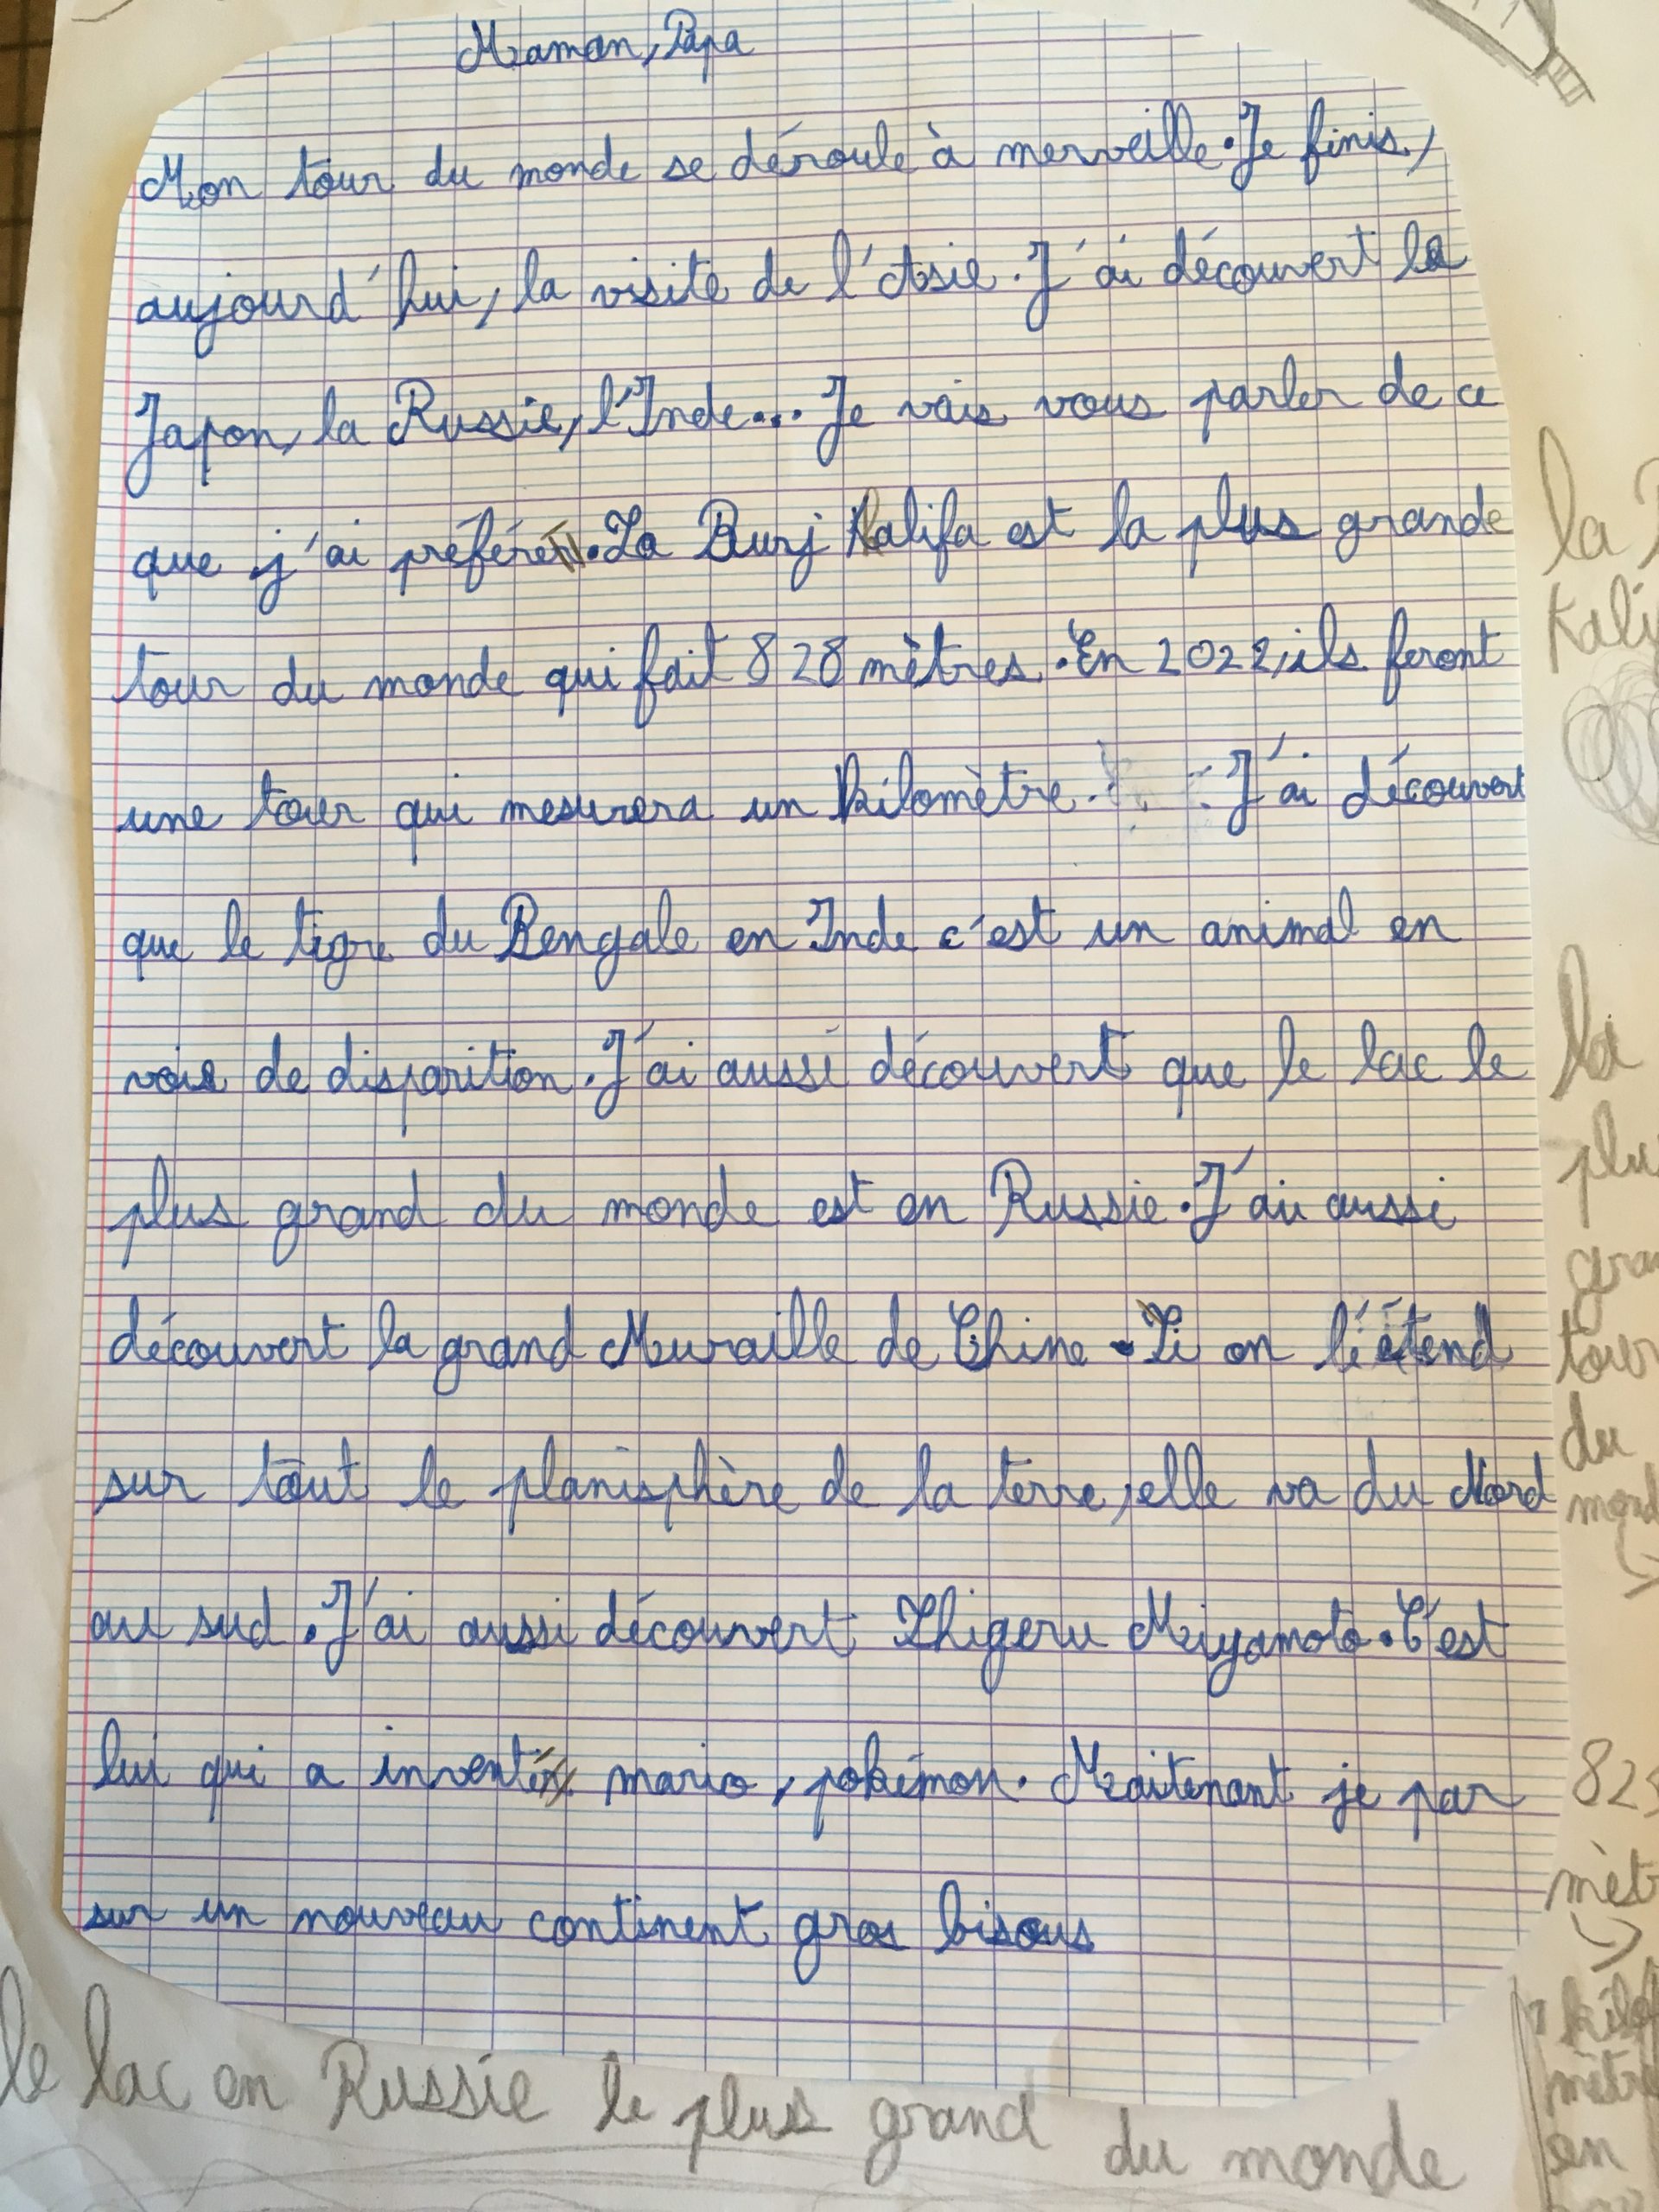 Maman, Papa
Mon tour du monde se déroule à merveille. Je finis,
aujourd'hui, la visite de l'Asie. J'ai découvert la
Japon, la Russie, l'Inde... Je vais vous parler de ce
que j'ai préféré. La Burj Kalifa est la plus grande
tour du monde qui fait 828 mètres. En 2022, ils feront
une tour qui mesurera un kilomètre. J'ai découvert
que le tigre du Bengale en Inde c'est un animal en
voie de disparition. J'ai aussi découvert que le lac le
plus grand du monde est en Russie. J'ai aussi
découvert la grand Muraille de Chine. Si on l'étend
sur tout le planisphère de la terre, elle va du Nord
au sud. J'ai aussi découvert Shigeru Miyamoto. C'est
lui qui a inventé mario, pokémon. Maitenant je par
sur un nouveau continent gros bisous
le lac en Russie le plus grand du monde
la
Kali
la
plu
gran
tour
du
mond
82
mèt
kilo
mètre
en